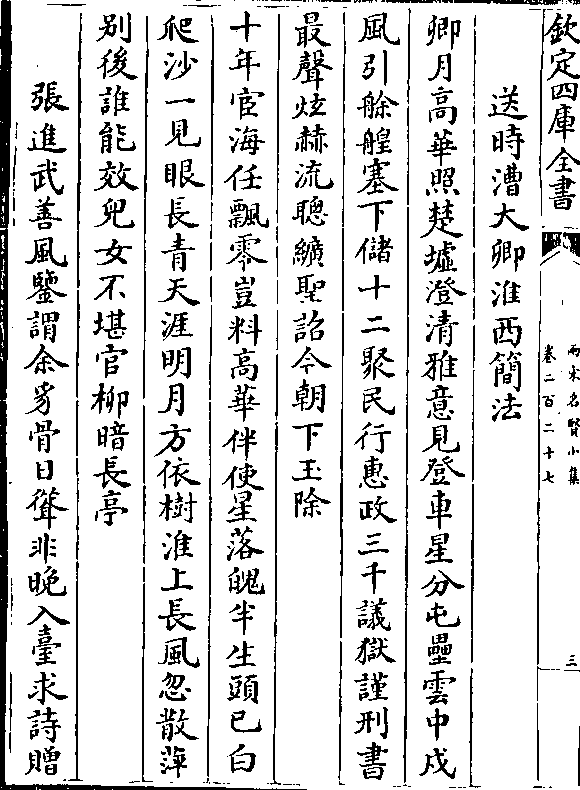 欽定四庫全書
兩宋名賢小集
卷二百二十七
三
送時漕大卿淮西簡法
卿月高華照楚墟澄清雅意見登車星分屯壘雲中戍
風引艅艎塞下儲十二聚民行惠政三千議獄謹刑書
最聲炫赫流聰纊聖詔今朝下玉除
十年宦海任飄零豈料高華伴使星落魄半生頭已白
爬沙一見眼長青天涯明月方依樹淮上長風忽散萍
别後誰能效兒女不堪官柳暗長亭
張進武善風鑒謂余豸骨日聳非晚入臺求詩贈